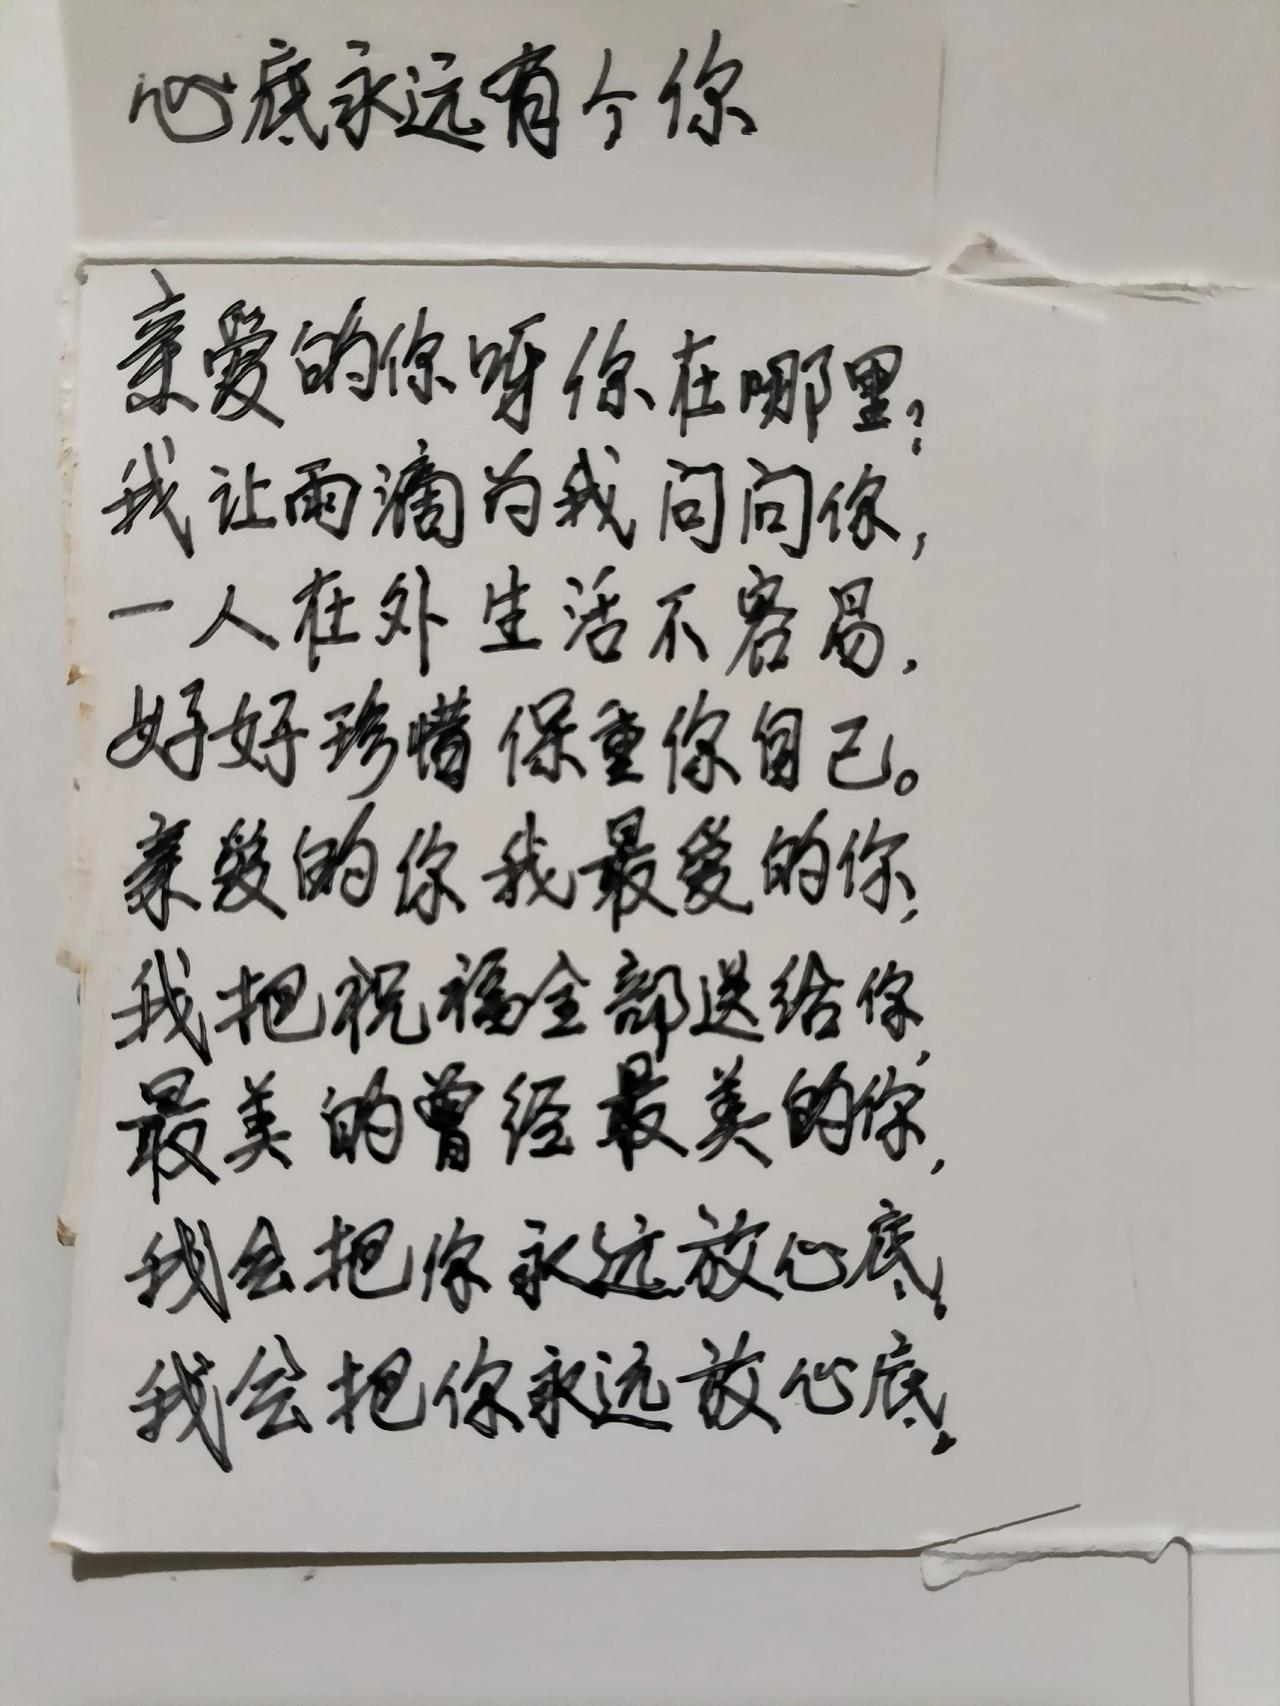 心底永远有个你
亲爱的你呀你在哪里?
我让雨滴为我问问你,
一人在外生活不容易,
好好珍惜保重你自己。
亲爱的你我最爱的你,
我把祝福全部送给你,
最美的曾经最美的你,
我会把你永远放心底,
我会把你永远放心底.